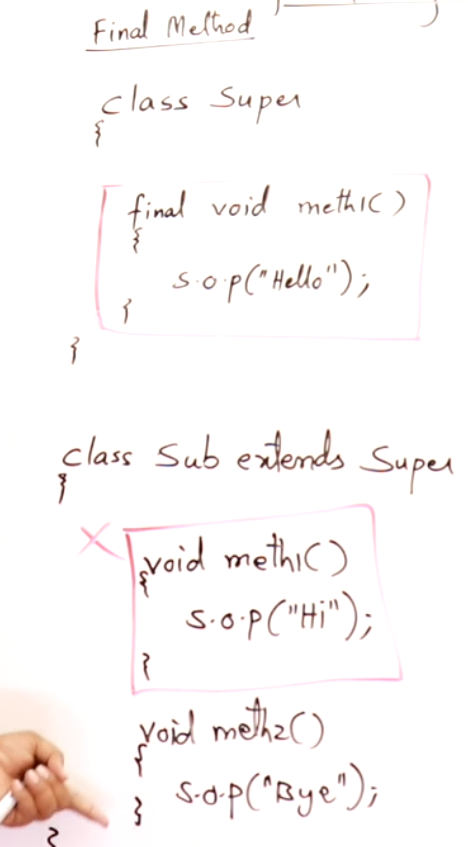 Final Method
class Super
{
final void meth1()
{
s.o.p("Hello");
}
}
class Sub extends Super
{
void meth1()
{
s.o.p("Hi");
}
void meth2()
{
s.o.p("Bye");
}
}